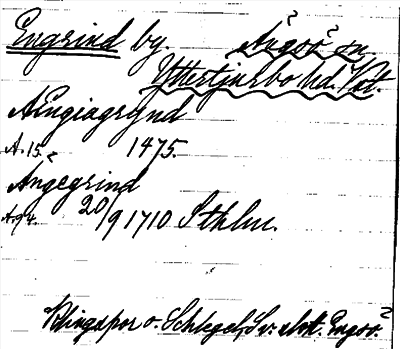 Engrind by. Ängsö sn.
Yttertjurbo hd. Vstl.
AEngiagrynd
A. 15. 1475.
Ängegrind
A. 94. 20/9 1710 Sthlm.
Klingspor o. Schlegel, Sv. slott. Engsö.